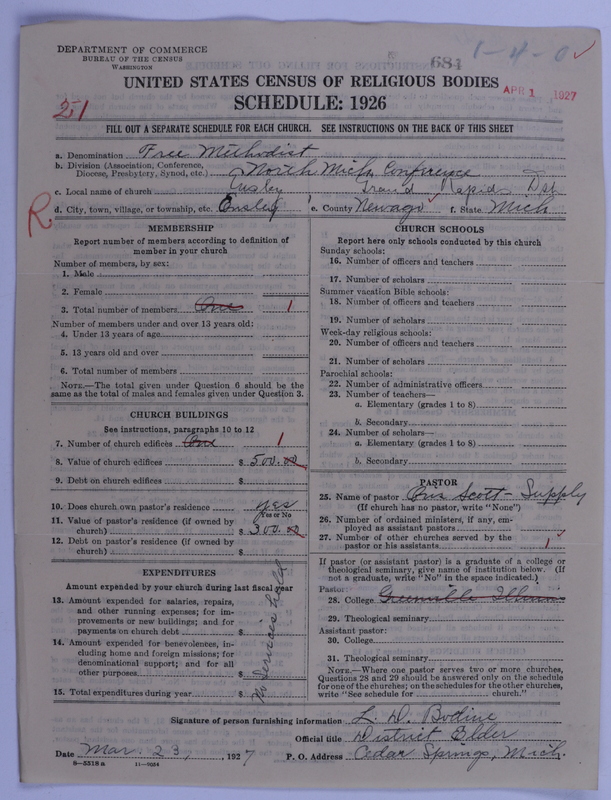 DEPARTMENT OF COMMERCE
BUREAU OF THE CENSUS
WASHINGTON
684
1-4-0
UNITED STATES CENSUS OF RELIGIOUS BODIES
APR 1 1927
SCHEDULE: 1926
21
FILL OUT A SEPARATE SCHEDULE FOR EACH CHURCH. SEE INSTRUCTIONS ON THE BACK OF THIS SHEET
a. Denomination Free Methodist
b. Division (Association, Conference, Diocese, Presbytery, Synod, etc.) North Mich. Conference
c. Local name of church Ensley Grand Rapids Dst
R
d. City, town, village, or township, etc. Ensley e. County Newago f. State Mich
MEMBERSHIP
Report number of members according to definition of
member in your church
Number of members, by sex:
1. Male
2. Female
3. Total number of members One 1
Number of members under and over 13 years old:
4. Under 13 years of age
5. 13 years old and over
6. Total number of members
NOTE.—The total given under Question 6 should be the
same as the total of males and females given under Question 3.
CHURCH BUILDINGS
See instructions, paragraphs 10 to 12
7. Number of church edifices One 1
8. Value of church edifices $ 500.00
9. Debt on church edifices $
10. Does church own pastor's residence yes
Yes or No
11. Value of pastor's residence (if owned by
church) $ 300.00
12. Debt on pastor's residence (if owned by
church) $
EXPENDITURES
Amount expended by your church during last fiscal year
13. Amount expended for salaries, repairs,
and other running expenses; for im-
provements or new buildings; and for
payments on church debt $
14. Amount expended for benevolences, in-
cluding home and foreign missions; for
denominational support; and for all
other purposes $
15. Total expenditures during year $
No Services held
CHURCH SCHOOLS
Report here only schools conducted by this church
Sunday schools:
16. Number of officers and teachers
17. Number of scholars
Summer vacation Bible schools:
18. Number of officers and teachers
19. Number of scholars
Week-day religious schools:
20. Number of officers and teachers
21. Number of scholars
Parochial schools:
22. Number of administrative officers
23. Number of teachers—
a. Elementary (grades 1 to 8)
b. Secondary
24. Number of scholars—
a. Elementary (grades 1 to 8)
b. Secondary
PASTOR
25. Name of pastor Scott - Supply
(If church has no pastor, write "None")
26. Number of ordained ministers, if any, em-
ployed as assistant pastors
27. Number of other churches served by the
pastor or his assistants 1
If pastor (or assistant pastor) is a graduate of a college or
theological seminary, give name of institution below. (If
not a graduate, write "No" in the space indicated.)
Pastor:
28. College Greenville Illinois
29. Theological seminary
Assistant pastor:
30. College
31. Theological seminary
NOTE.—Where one pastor serves two or more churches,
Questions 28 and 29 should be answered only on the schedule
for one of the churches; on the schedules for the other churches,
write "See schedule for church."
Signature of person furnishing information L. D. Bodine
Official title District Elder
Date Mar. 23, 1927 P. O. Address Cedar Springs, Mich.
8-5518 a 11-9034